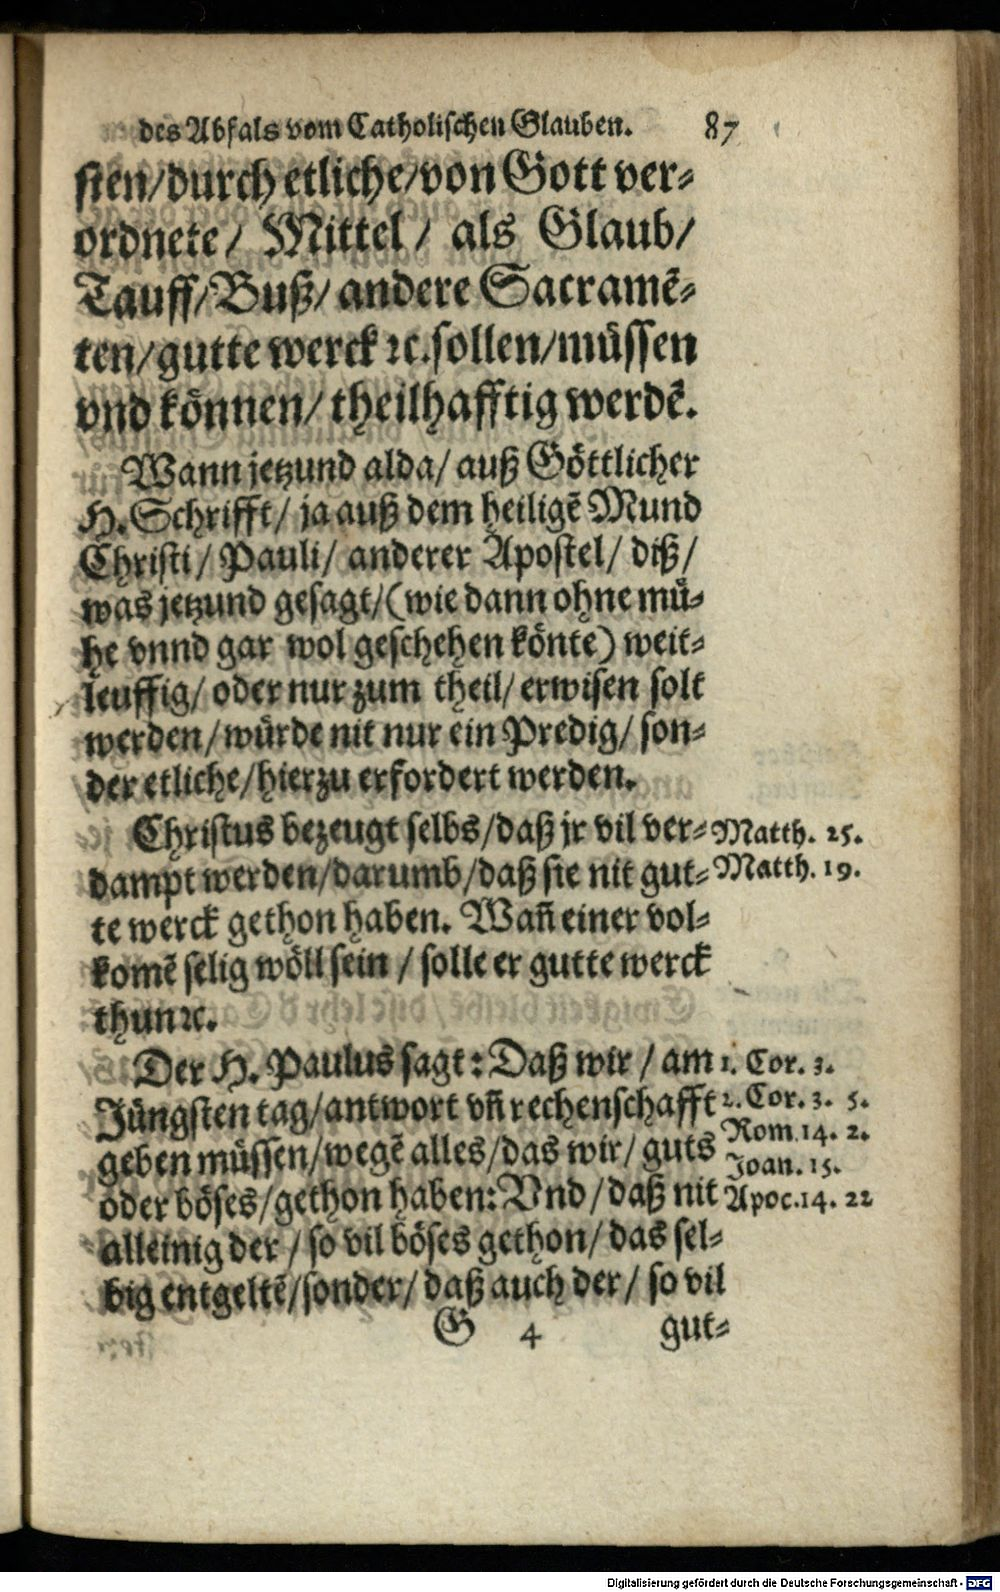 des Abfals vom Catholischen Glauben. 87
sten/durch etliche/von Gott ver-
ordnete/ Mittel/ als Glaub/
Tauff/Buß/andere Sacramẽ-
ten/gutte werck ꝛc.sollen/müssen
vnd können/theilhafftig werdẽ.
Wann jetzund alda/auß Göttlicher
H. Schrifft/ ja auß dem heiligẽ Mund
Christi/ Pauli/ anderer Apostel/ diß/
was jetzund gesagt/(wie dann ohne mü-
he vnnd gar wol geschehen könte) weit-
leuffig/ oder nur zum theil/ erwisen solt
werden/würde nit nur ein Predig/ son-
der etliche/hierzu erfordert werden.
Christus bezeugt selbs/daß jr vil ver- Matth. 25.
dampt werden/darumb/daß sie nit gut- Matth. 19.
te werck gethon haben. Wañ einer vol-
komẽ selig wöll sein / solle er gutte werck
thun ꝛc.
Der H. Paulus sagt: Daß wir / am 1. Cor. 3.
Jüngsten tag/antwort vñ rechenschafft 2. Cor. 3. 5.
geben müssen/wegẽ alles/das wir/ guts Rom. 14. 2.
Joan. 15.
oder böses/gethon haben: Vnd/daß nit Apoc. 14. 22
alleinig der / so vil böses gethon/ das sel-
big entgeltẽ/sonder/ daß auch der/ so vil
G 4 gut-
Digitalisierung gefördert durch die Deutsche Forschungsgemeinschaft - DFG